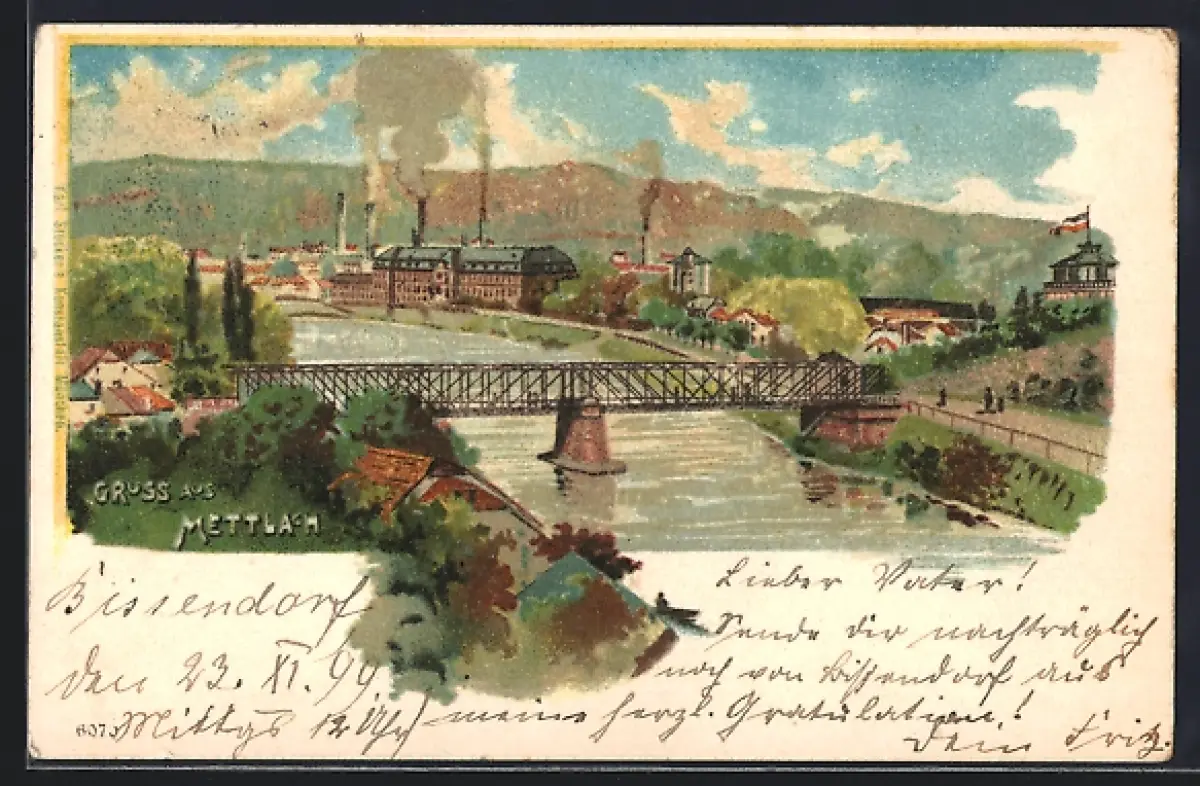 GRUSS AUS
METTLACH
Bissendorf
den 23. XI. 99
Mittgs 12 Uhr
Lieber Vater!
Sende dir nachträglich
noch von Bissendorf aus
meine herzl. Gratulation!
Dein Fritz.